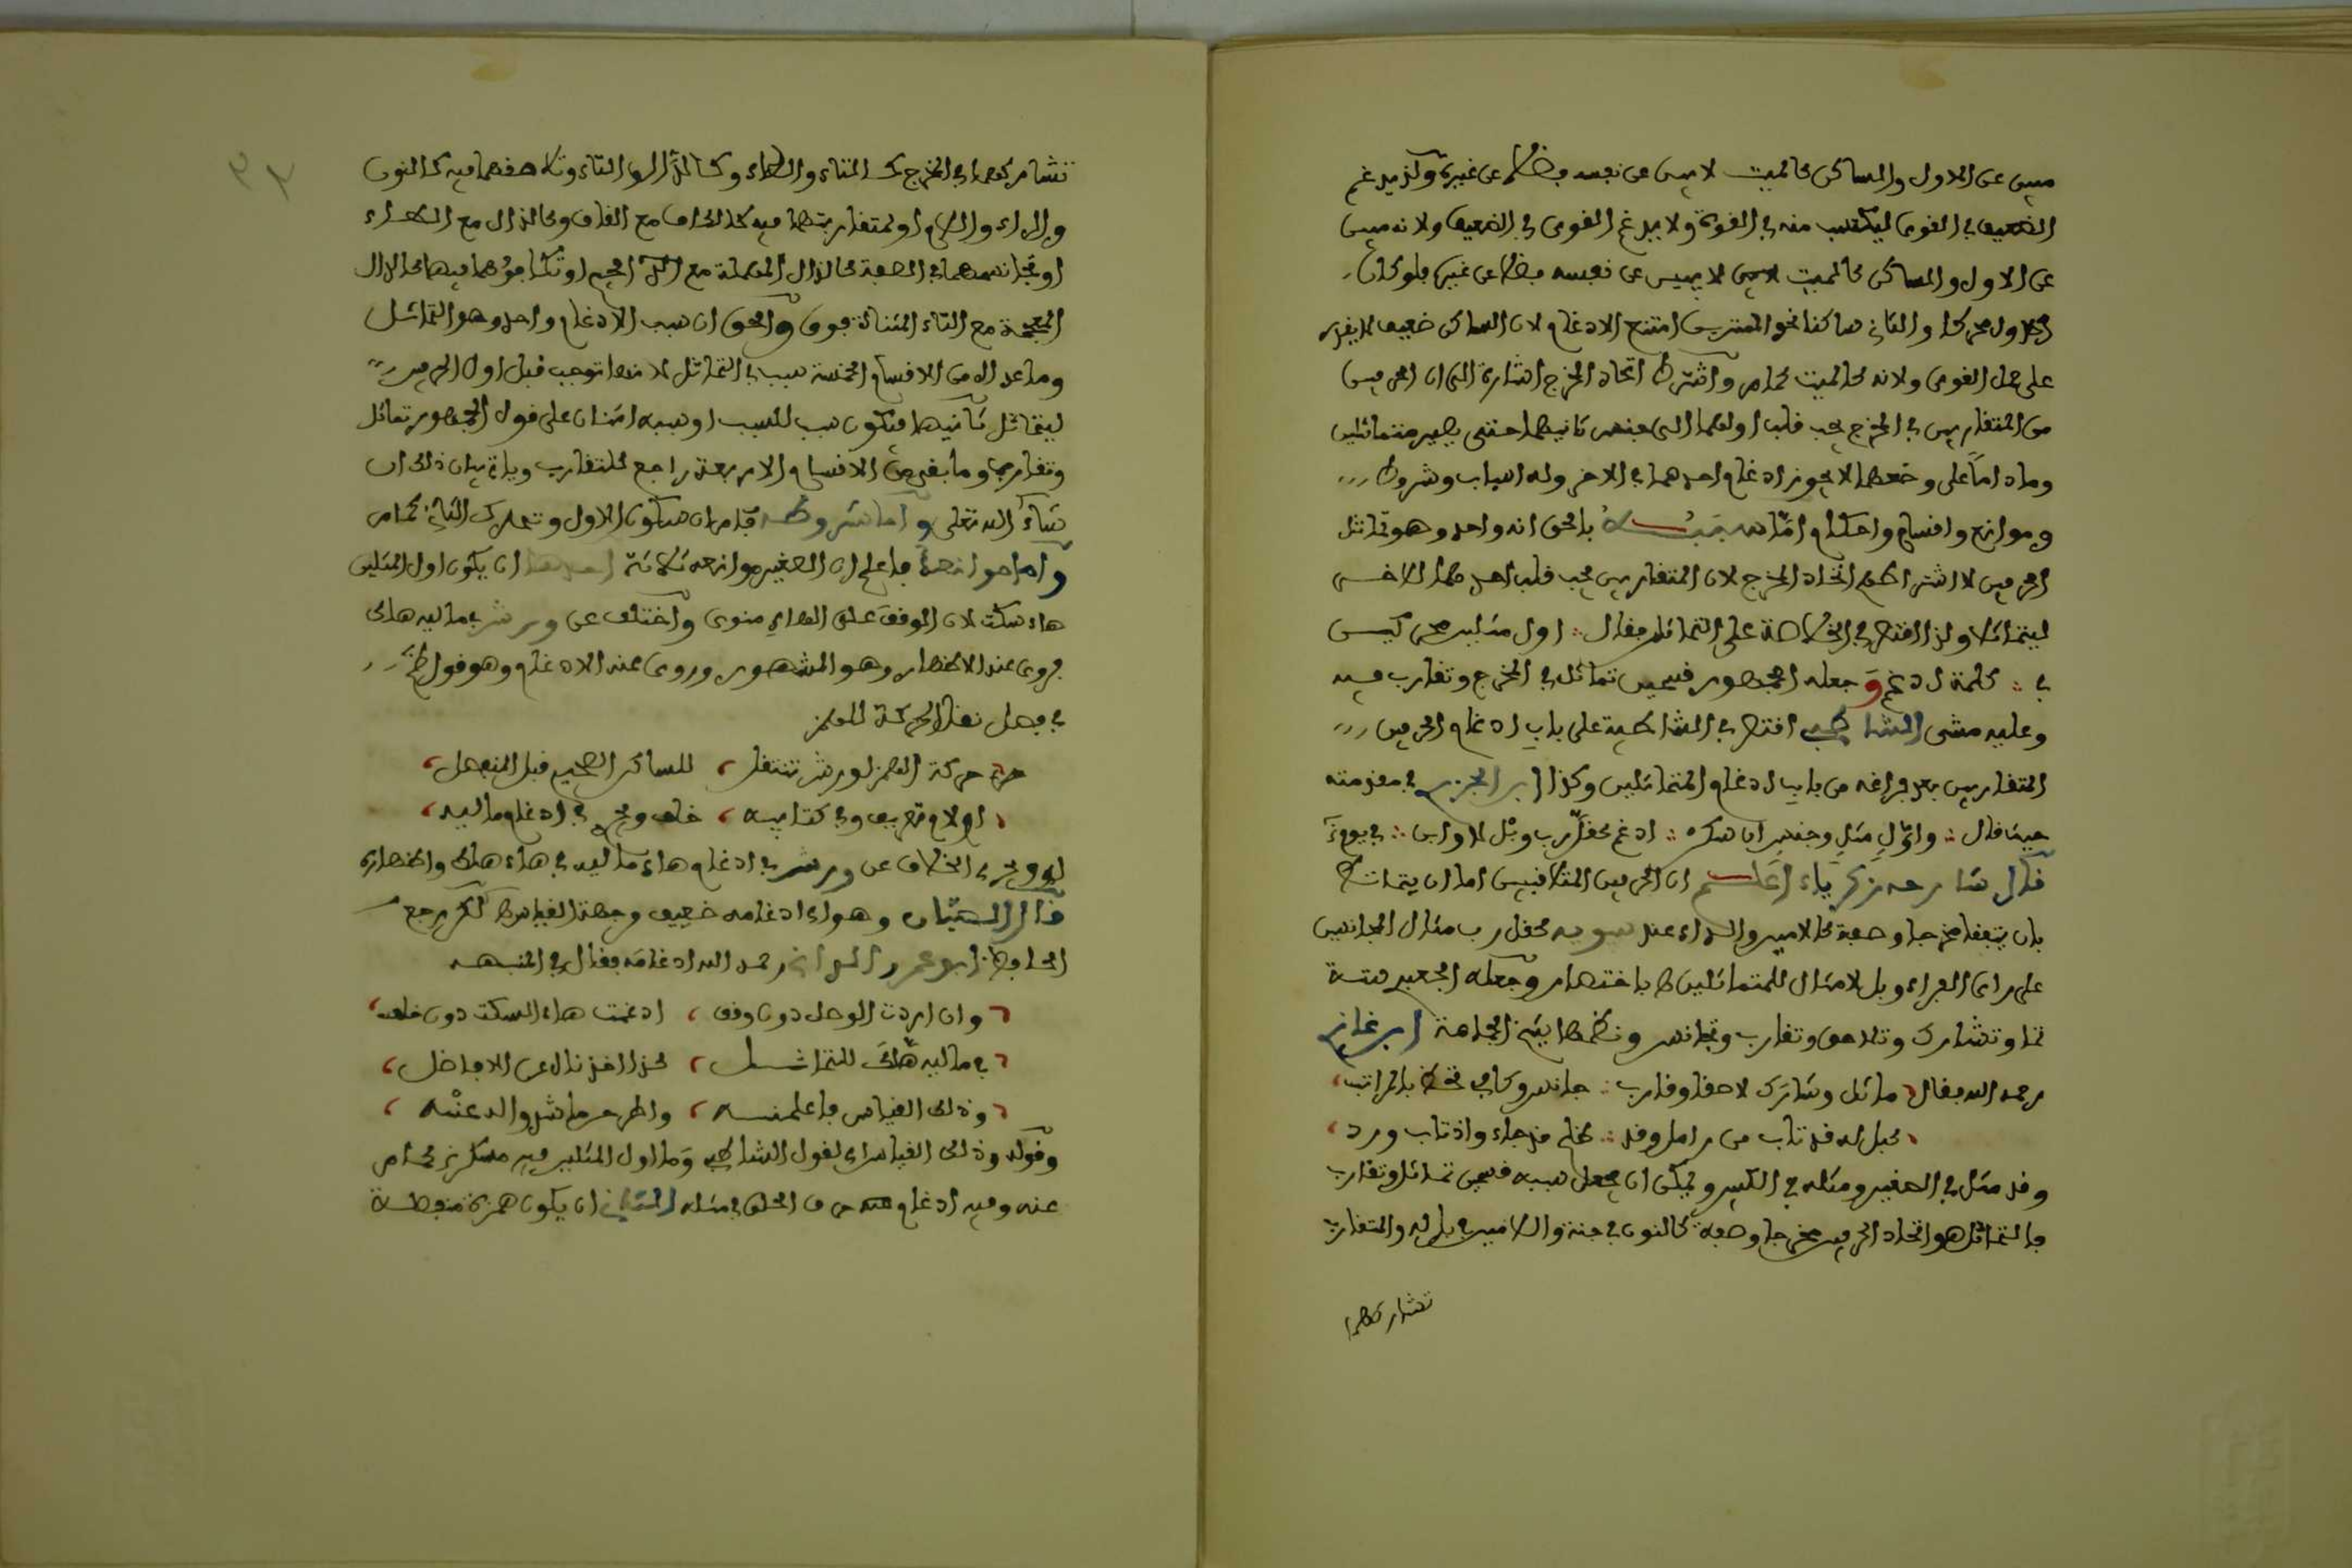 مبين عن الاول والساكن كالميت لا يبين عن نفسه فضلا عن غيره ولذا يدغم
الضعيف في القوي ليكتسب منه في القوة ولا يدغم القوي في الضعيف ولانه مبين
عن الاول والساكن كالميت لا يبين عن نفسه فضلا عن غيره فلو كان
الاول محركا والثاني ساكنا نحو امتنع الادغام لان الساكن ضعيف لا يقدر
على حمل القوي ولانه كالميت كما مر واشترط اتحاد المخرج اشارة الى ان الحرفين
من المتقاربين في المخرج يجب قلب اولهما الى جنس ثانيهما حتى يصير متماثلين
وما داما على وضعهما لا يجوز ادغام احدهما في الاخر وله اسباب وشروط
وموانع واقسام واحكام اما سببه فالحق انه واحد وهو تماثل
الحرفين لا اشتراطهم اتحاد المخرج لان المتقاربين يجب قلب احدهما للاخر
ليتماثلا ولذا اقتصر في الخلاصة على التماثل فقال ؞ اول مثلين محركين
في ؞ كلمة ادغم وجعله الجمهور قسمين تماثل في المخرج وتقارب فيه
وعليه مشى الشاطبي اقتصر في الشاطبية على باب ادغام الحرفين
المتقاربين بعد فراغه من باب ادغام المتماثلين وكذا ابن الجزري في مقدمته
حيث قال ؞ واولي مثل وجنس ان سكن ؞ ادغم كقل رب وبل لا وابن ؞ في يوم
قال شارحه زكرياء اعلم ان الحرفين المتلاقيين اما ان يتماثلا
بان يتفقا مخرجا وصفة كاللامين والراء عند سيبويه كقل رب مثال المجانسين
على راي الفراء وبل لا مثال للمتماثلين باختصار وجعله الجعبري ستة
تماثل وتشارك وتلاصق وتقارب وتجانس ونظمها شيخ الجماعة ابن غازي
رحمه الله فقال ماثل وشارك لاصقا وقارب ؞ جانس وكافي تحظ بالمراتب
كبل له قد تاب من رام لوقد ؞ نخلق قد جاء واذ تاب ورد
وقد مثل في الصغير ومثله في الكبير ويمكن ان يجعل سببه قسمين تماثل وتقارب
فالتماثل هو اتحاد الحرفين مخرجا وصفة كالنون في جنة واللامين في بل له والمتقارب
تشاركهما
تشاركهما في المخرج كالتاء والطاء وكالدال والتاء وتلاصقهما فيه كالنون
والراء واللام او تقاربهما فيه كالكاف مع القاف وكالذال مع الطاء
او تجانسهما في الصفة كالدال المهملة مع الجيم او تكافؤهما فيهما كالذال
المعجمة مع التاء المثناة فوق والحق ان سبب الادغام واحد وهو التماثل
وما عداه من الاقسام الخمسة سبب في التماثل لانها توجب قبل اول الحرفين
ليتماثل ثانيهما فتكون سبب السبب او سببه اثنان على قول الجمهور تماثل
وتقارب وما بقي من الاقسام الاربعة راجع للتقارب وياتي بيان ذلك ان
شاء الله تعالى واما شروطه فامران سكون الاول وتحرك الثاني كما مر
واما موانعه فاعلم ان الصغير موانعه ثلاثة احدها ان يكون اول المثلين
هاء سكت لان الوقف على الهاء منوي واختلف عن ورش في ماليه هلك
فروي عنه الاظهار وهو المشهور وروي عنه الادغام وهو قول
في فصل نقل الحركة للهمز
حركة الهمز لورش تنتقل ، للساكن الصحيح قبل المنفصل ،
او لام تعريف وفي كتابيه ، خلف ويجري في ادغام ماليه ،
اي ويجري الخلاف عن ورش في ادغام هاء ماليه في هاء هلك واظهاره
قال وهواء ادغامه ضعيف وجهة القياس لكن رجح
الحافظ ابو عمرو الداني رحمه الله ادغامه فقال في المنبهة
وان اردت الوصل دون وقف ، ادغمت هاء السكت دون خلف
في ماليه هلك للتماثل ، كذا اخذنا عن الافاضل ،
وذلك القياس فاعلمنه ، واطرح ما شذ والد عنه ،
وقوله وذلك القياس اي لقول الشاطبي وما اول المثلين فيه مسكن كما مر
عنه وفيه ادغام حرف الحلق في مثله الثاني ان يكون همزة منفصلة